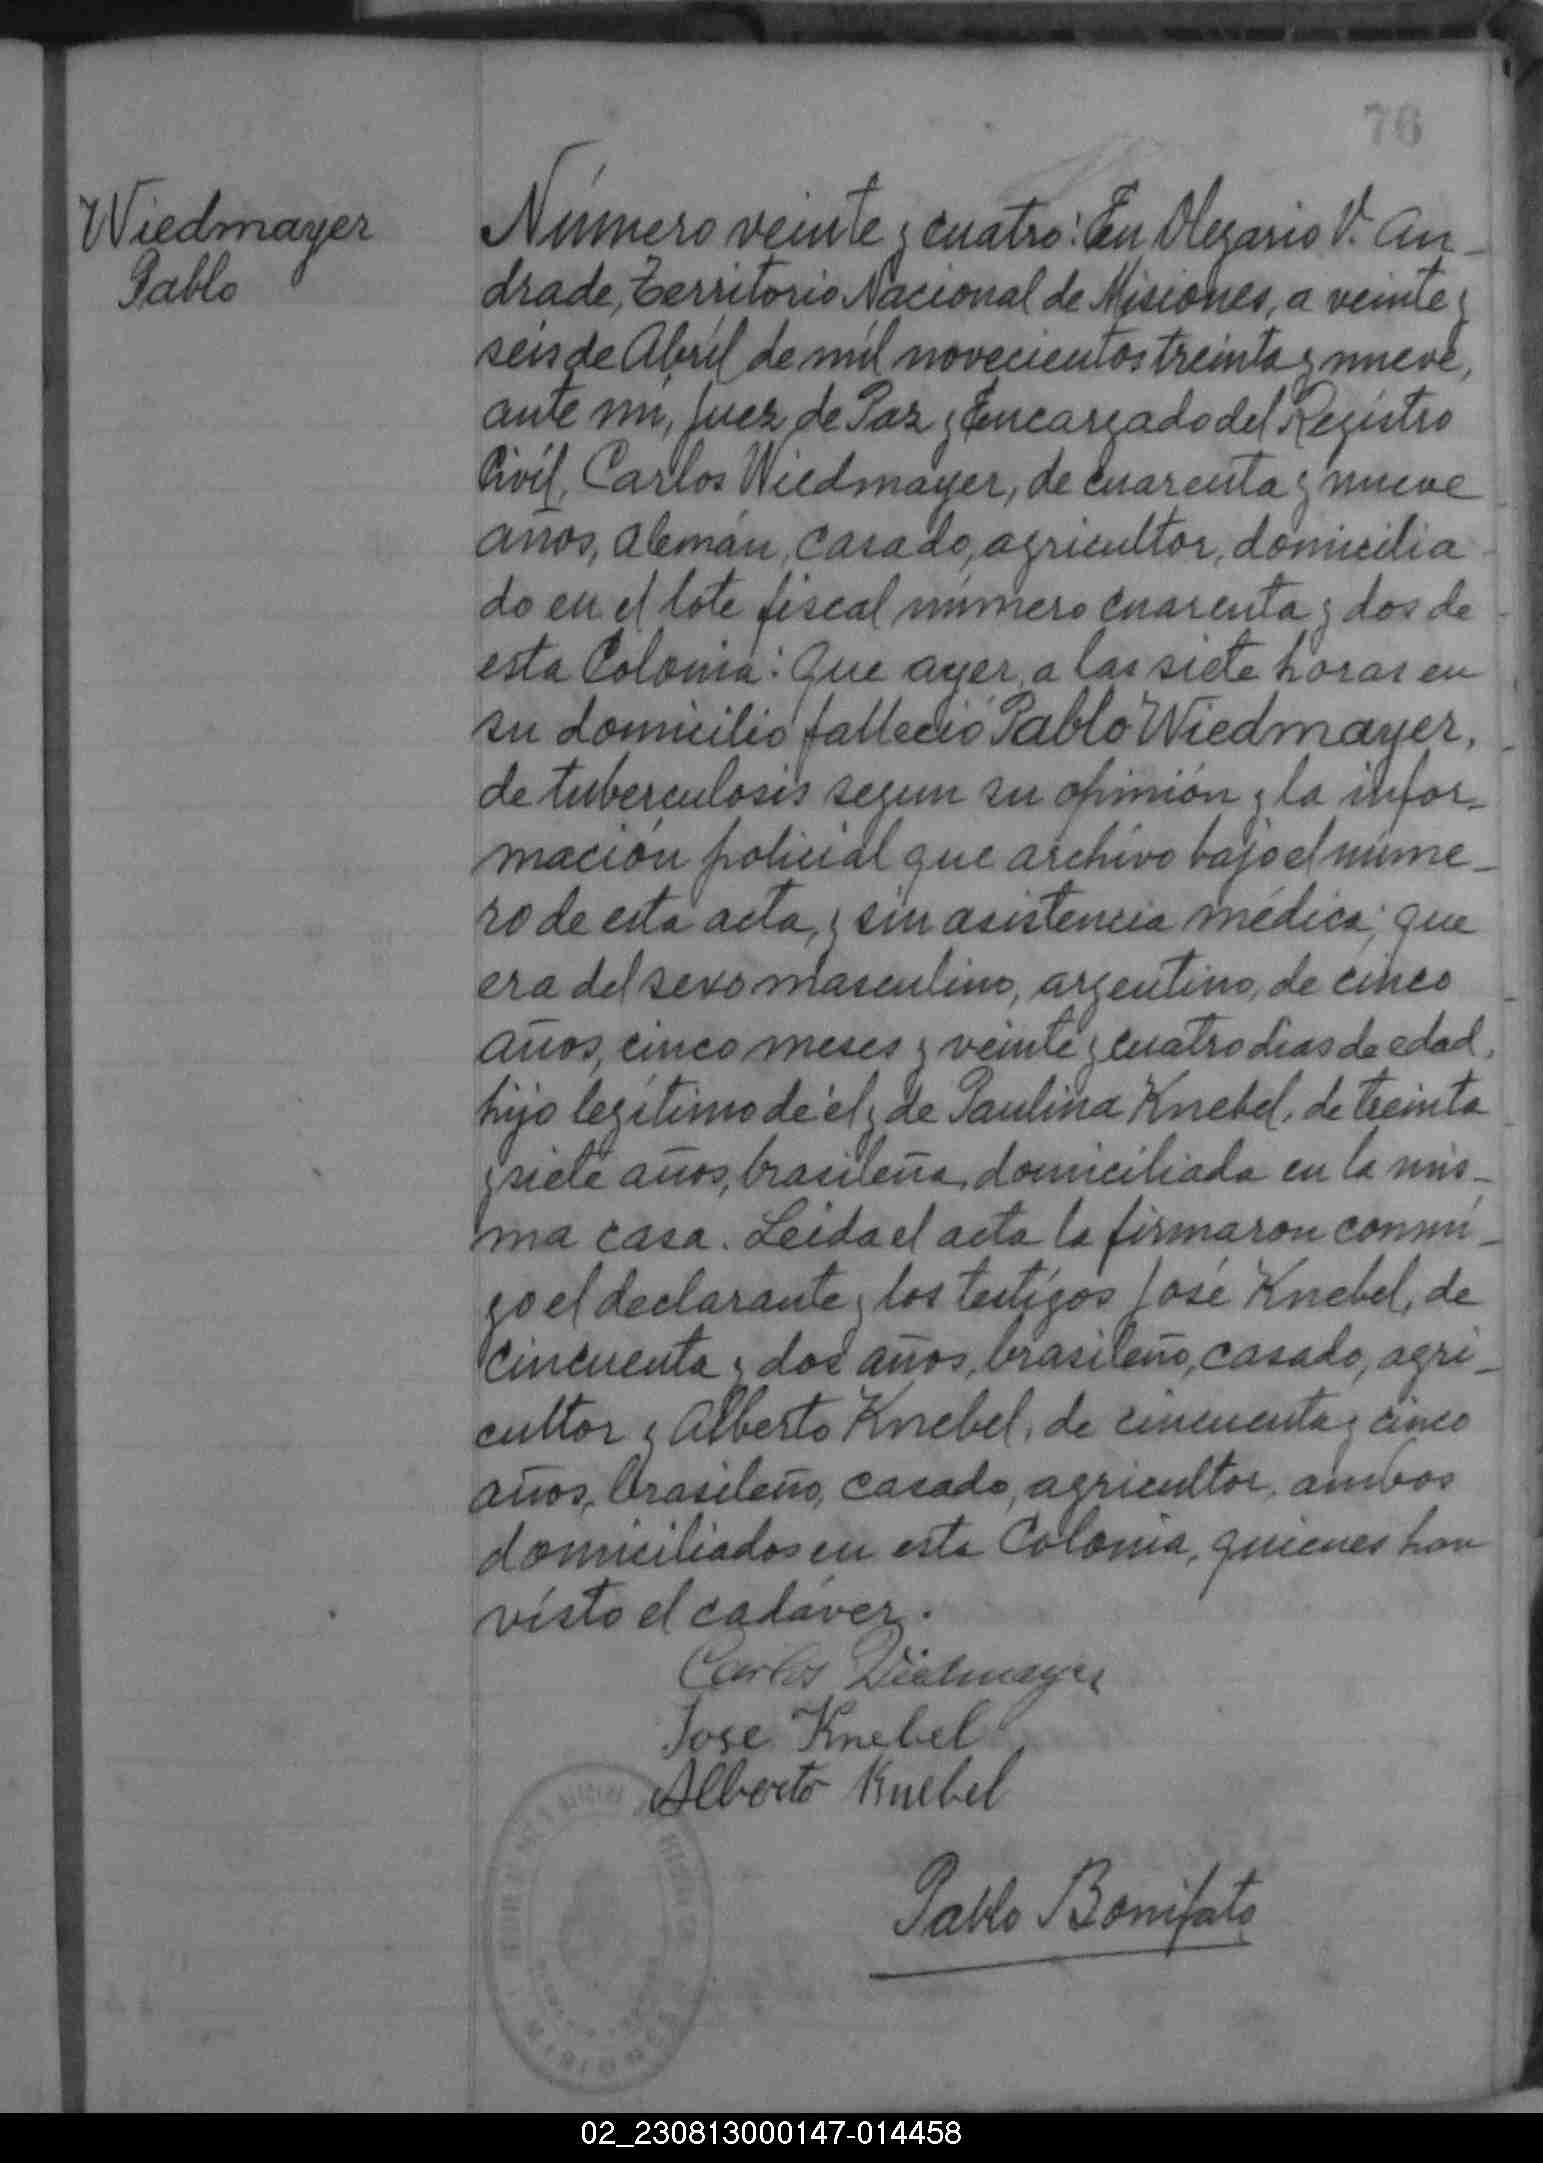 76
Wiedmayer
Pablo
Número veinte y cuatro: En Olegario V. An-
drade, Territorio Nacional de Misiones, a veinte y
seis de Abril de mil novecientos treinta y nueve,
ante mi, Juez de Paz y Encargado del Registro
Civil, Carlos Wiedmayer, de cuarenta y nueve
años, alemán, casado, agricultor, domicilia-
do en el lote fiscal número cuarenta y dos de
esta Colonia: Que ayer, a las siete horas en
su domicilio falleció Pablo Wiedmayer,
de tuberculosis segun su opinión y la infor-
mación policial que archivo bajo el núme-
ro de esta acta, y sin asistencia médica; que
era del sexo masculino, argentino, de cinco
años, cinco meses y veinte y cuatro dias de edad,
hijo legítimo de él y de Paulina Knebel, de treinta
y siete años, brasileña, domiciliada en la mis-
ma casa. Leida el acta la firmaron conmi-
go el declarante y los testigos José Knebel, de
cincuenta y dos años, brasileño, casado, agri-
cultor y Alberto Knebel, de cincuenta y cinco
años, brasileño, casado, agricultor, ambos
domiciliados en esta Colonia, quienes han
visto el cadáver.
Carlos Wiedmayer
Jose Knebel
Alberto Knebel
Pablo Bonifato
MISIONES
02_230813000147-014458